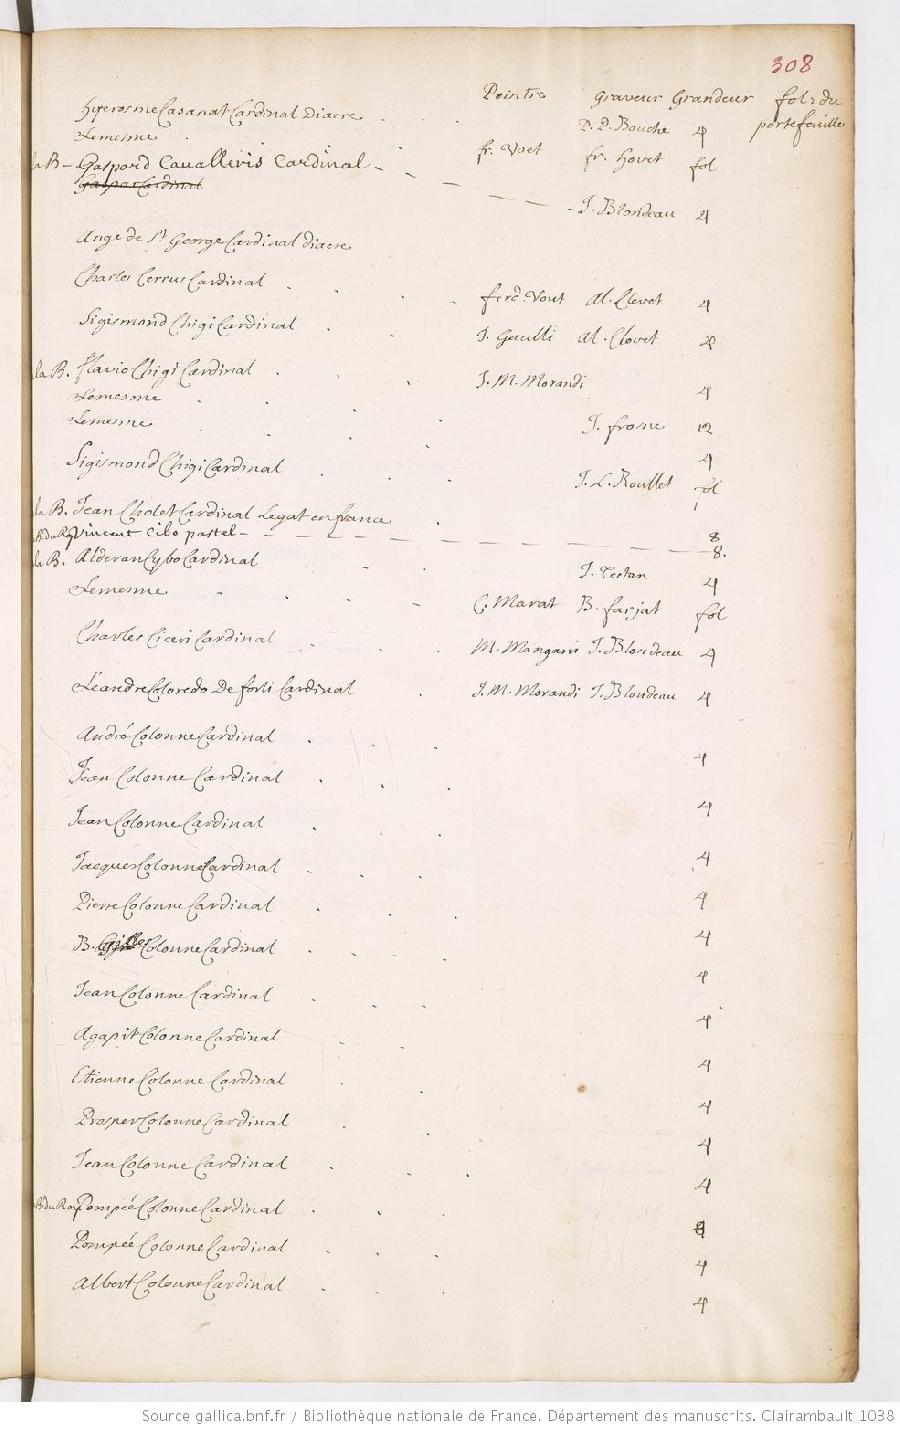 308
Peintre Graveur Grandeur fol: du portefeuille
hyerosme Casanat Cardinal Diacre . . P. P. Bouche 4
Lemesme . fr. Voet fr. Hovet fol
la B - Gaspord Cauallieris Cardinal - J. Blondeau 4
Gaspar Cardinal
Ange de St George Cardinal diacre
Charles Cerrus Cardinal . . . . ferd. Vout Al. Clovet 4
Sigismond Chigi Cardinal . . J. Gaulli Al. Clovet 4
la B. flavio Chigi Cardinal . . . J. M. Morandi 4
Lemesme . . . J. frosne 12
Lemesme . . . 4
Sigismond Chigi Cardinal . . . J. L. Roullet fol
la B. Jean Cholet Cardinal Legat en france . 8
B. du Roy Vincent Cibo pastel - 8.
la B. Alderan Cybo Cardinal . . J. Testan 4
Lemesme . . . C. Marat B. farjat fol
Charles Ciceri Cardinal . . . M. J. Blondeau 4
Leandre Coloredo De forli Cardinal . J. M. Morandi J. Blondeau 4
André Colonne Cardinal . . . 4
Jean Colonne Cardinal . . . 4
Jean Colonne Cardinal . . . 4
Jacques Colonne Cardinal . . . 4
Pierre Colonne Cardinal . . . 4
B. Gilles Colonne Cardinal . . . . 4
Jean Colonne Cardinal . . . 4
Agapit Colonne Cardinal . . 4
Etienne Colonne Cardinal . . 4
Prosper Colonne Cardinal . . 4
Jean Colonne Cardinal . . . 4
B. du Roy Pompée Colonne Cardinal . . . 4
Pompée Colonne Cardinal . . . 4
Albert Colonne Cardinal . . . 4
Source gallica.bnf.fr / Bibliothèque nationale de France. Département des manuscrits. Clairambault 1038